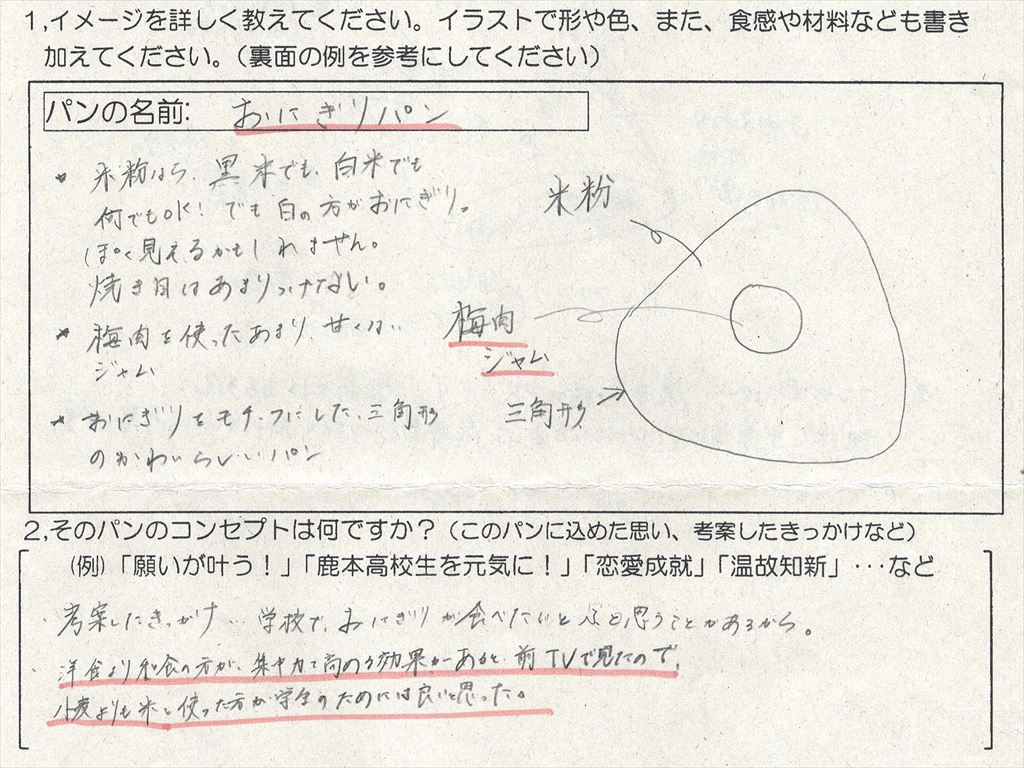 1,イメージを詳しく教えてください。イラストで形や色、また、食感や材料なども書き
加えてください。（裏面の例を参考にしてください）
パンの名前: おにぎりパン
* 米粉なら、黒米でも、白米でも
何でもOK! でも白の方がおにぎり。
ぽく見えるかもしれません。
焼き目はあまりつけない。
* 梅肉を使ったあまり、甘くない
ジャム
* おにぎりをモチーフにした、三角形
のかわいらしいパン
米粉
梅肉
ジャム
三角形
2,そのパンのコンセプトは何ですか？（このパンに込めた思い、考案したきっかけなど）
(例)「願いが叶う！」「鹿本高校生を元気に！」「恋愛成就」「温故知新」･･･など
・考案したきっかけ… 学校で、おにぎりが食べたいとふと思うことがあるから。
・洋食より和食の方が、集中力を高める効果があると、前TVで見たので、
小麦よりも米を使った方が学生のためには良いと思った。